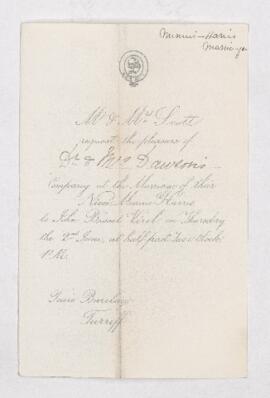 Minnie Harris
Marriage
Mr & Mrs Scott
request the pleasure of
Dr & Mrs Dawson's
Company at the Marriage of their
Niece Minnie Harris
to John Birch on Thursday
the 2nd June, at half past two o'clock
P.M.
Barclay
Turriff